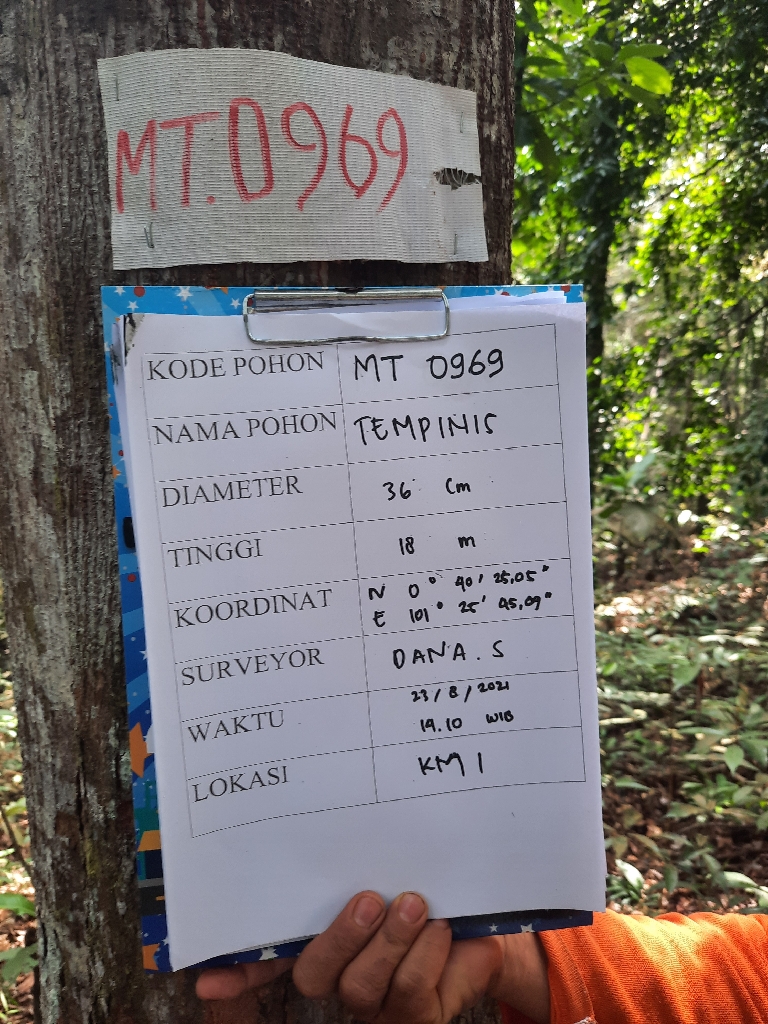 MT.0969
KODE POHON MT 0969
NAMA POHON TEMPINIS
DIAMETER 36 Cm
TINGGI 18 m
KOORDINAT N 0° 40' 25,05"
E 101° 25' 45,09"
SURVEYOR DANA.S
WAKTU 23/8/2021
14.10 WIB
LOKASI KM 1